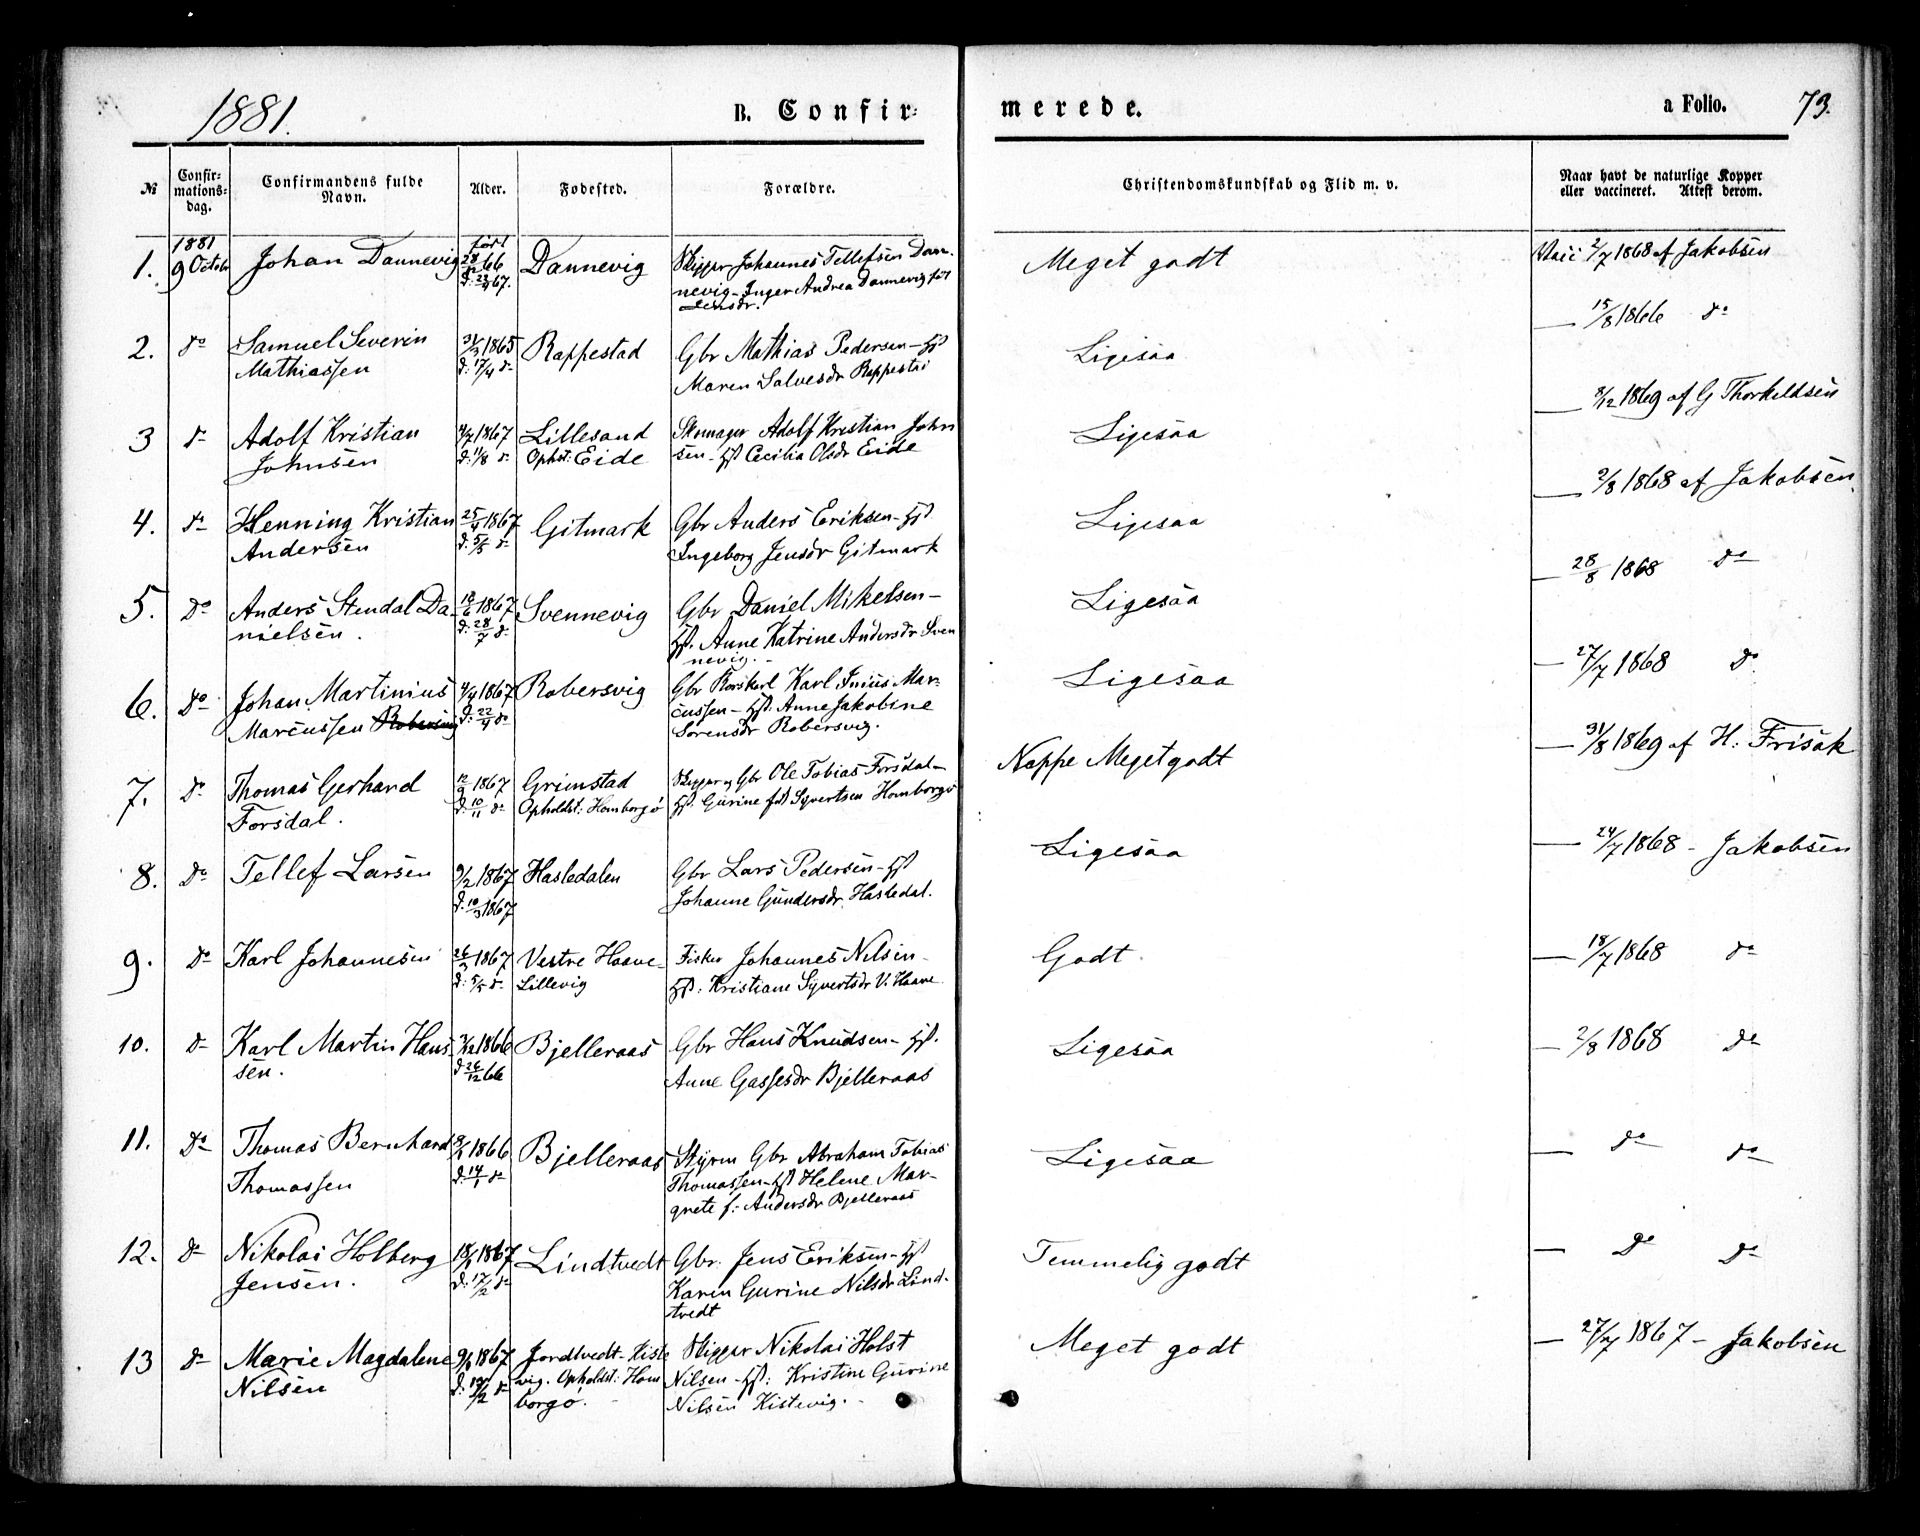 1881.
B. Confir-
merede.
a Folio. 73.
№
Confir-
mations-
dag.
Confirmandens fulde
Navn.
Alder.
Fødested.
Forældre.
Christendomskundskab og Flid m. v.
Naar havt de naturlige Kopper
eller vaccineret. Attest derom.
1. 1881 9 Octobr Johan Dannevig født 28/12 66 Dannevig Skipper Johannes Tellefsen Dan-
d: 23/4 67. nevig - Inger Andrea Dannevig født
Jensdr.
Meget godt Vacc 2/7 1868 af Jakobsen
2. do Samuel Severin 31/3 1865 Rappestad Gbr Mathias Pedersen - Hst
Mathiassen d: 17/4 do Maren Salvesdr Rappestad
Ligesaa — 15/8 1866 do
3 do Adolf Kristian 4/7 1867 Lillesand Adolf Kristian John
Johnsen d: 11/8 do Ophst: Eide sen - Hst Cecilia Olsdr Eide
Ligesaa — 8/12 1869 af G Thorkeldsen
4. do Henning Kristian 25/4 1867 Gitmark Gbr Anders Eriksen - Hst
Andersen d: 5/5 do Ingeborg Jensdr Gitmark
Ligesaa — 2/8 1868 af Jakobsen
5. Do Anders Stendal Da- 18/6 1867 Svennevig Gbr Daniel Mikelsen -
nielsen. d: 28/7 do Hst. Anne Katrine Andersdr Sven
nevig. -
Ligesaa — 28/8 1868 do
6. Do Johan Martinius 4/4 1867 Robersvig Gbr Karl Inius Mar-
Marcussen Robersvig d: 22/4 do cussen - Hst. Anne Jakobine
Sørensdr Robersvig.
Ligesaa — 27/7 1868 do
7. Do Thomas Gerhard 12/9 1867 Grimstad Skipper og Gbr Ole Tobias Forsdal -
Forsdal. d: 10/11 do Opholdst: Homborgø Hst. Gurine født Syvertsen Homborgø
Noppe Meget godt — 31/8 1869 af H: Frisak
8. Do Tellef Larsen 9/2 1867 Hasledalen Gbr Lars Pedersen - Hst
d: 10/3 1867 Johanne Gundersdr Hasledal.
Ligesaa — 24/7 1868 - Jakobsen
9. Do Karl Johannesen 26/3 1867 Vestre Haave- Fisker Johannes Nilsen -
d: 5/5 do Lillevig Hst: Kristiane Syvertsdr V. Haave
Godt. — 18/7 1868 do
10. Do Karl Martin Han- 3/12 1866 Bjelleraas Gbr Hans Knudsen - Hst.
sen. d 26/12 66 Anne Gassesdr Bjelleraas
Ligesaa — 2/8 1868 do
11. Do Thomas Bernhard 8/1 1866 Bjelleraas Styrm Gbr Abraham Tobias
Thomassen d: 14/1 do Thomassen - Hst Helene Mar-
grete f: Andersdr Bjelleraas
Ligesaa — do do
12. Do Nikolai Holberg 18/1 1867 Lindtvedt Gbr. Jens Eriksen - Hst
Jensen. d: 17/2 do Karen Gurine Nilsdr Lind-
tvedt
Temmelig godt — Do do
13 do Marie Magdalene 9/1 1867 Jordtvedt - Kiste Skipper Nikolai Holst
Nilsen d: 19/2 do vig. Opholdst: Hom Nilsen - Hst: Kristine Gurine
borgø. - Nilsen Kistevig. -
Meget godt — 27/7 1867 - Jakobsen